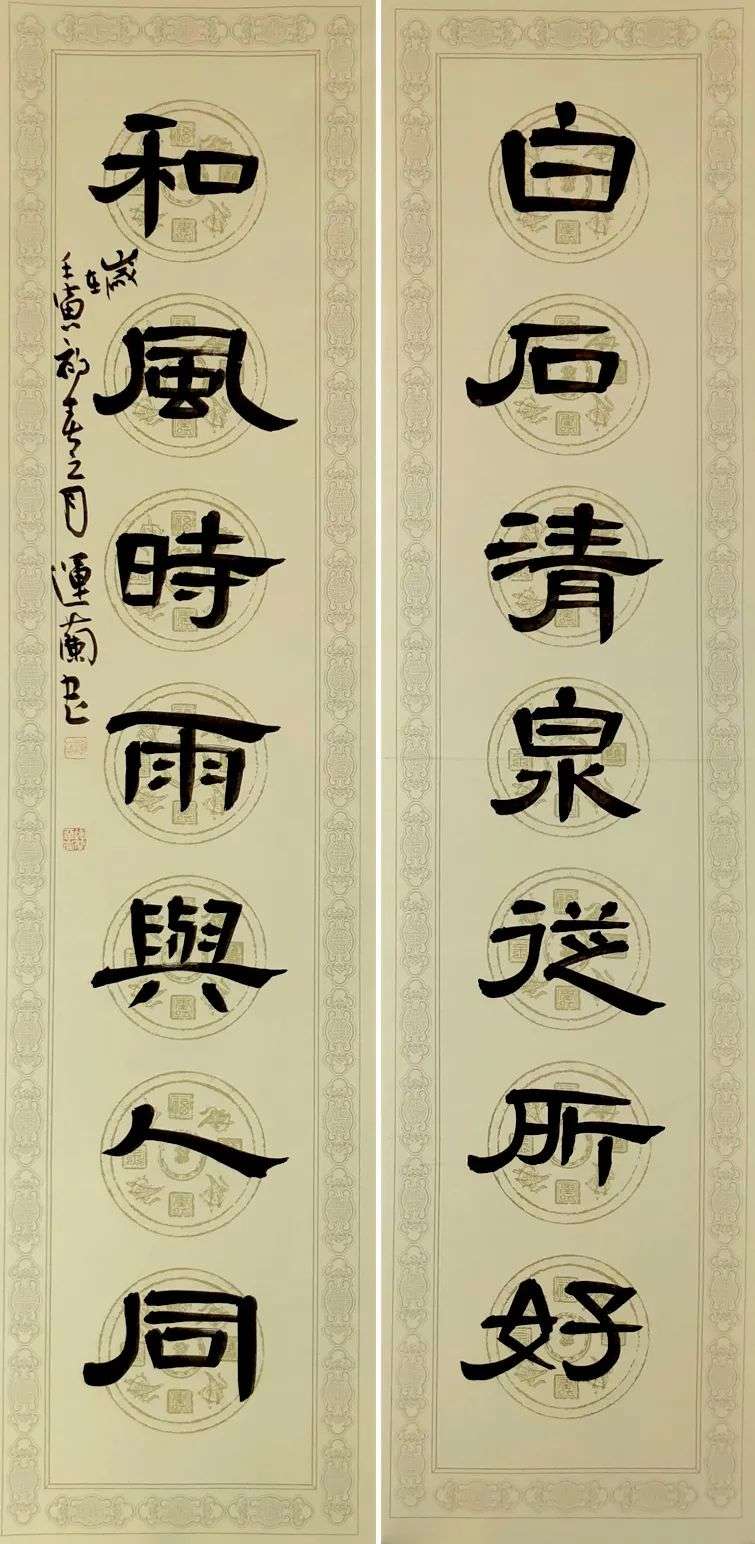 白石清泉從所好
和風時雨與人同
歲在
壬寅初春之月 運蘭書